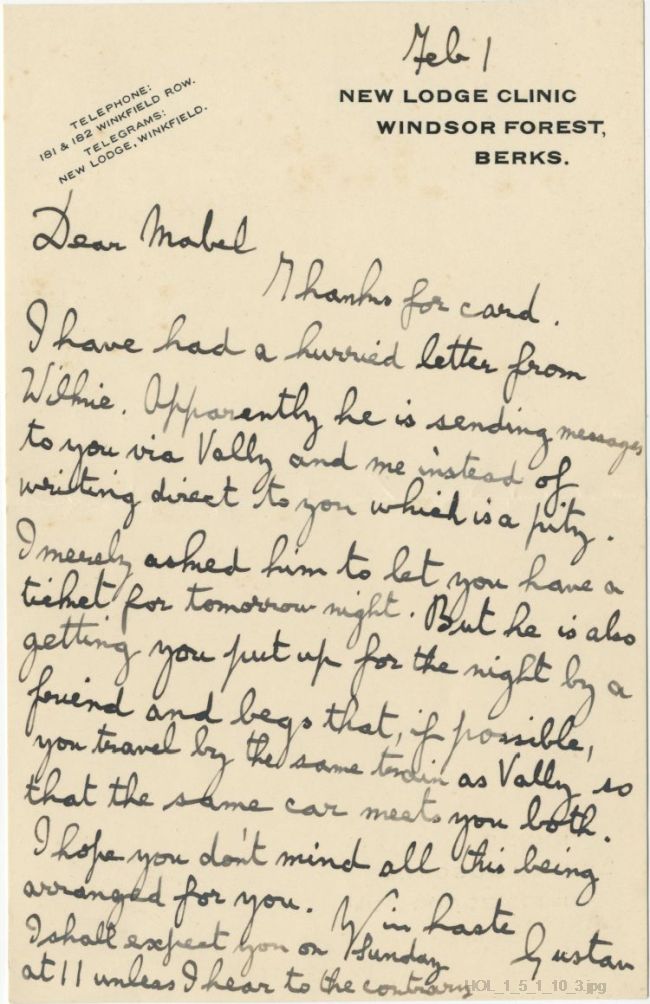 Feb 1
TELEPHONE:
181 & 182 WINKFIELD ROW.
TELEGRAMS:
NEW LODGE, WINKFIELD.
NEW LODGE CLINIC
WINDSOR FOREST,
BERKS.
Dear Mabel
Thanks for card.
I have had a hurried letter from
Wilkie. Apparently he is sending messages
to you via Vally and me instead of
writing direct to you which is a pity.
I merely asked him to let you have a
ticket for tomorrow night. But he is also
getting you put up for the night by a
friend and begs that, if possible,
you travel by the same train as Vally so
that the same car meets you both.
I hope you don't mind all this being
arranged for you.
In haste
Gustav
I shall expect you on Sunday
at 11 unless I hear to the contrary
HOL_1_5_1_10_3.jpg